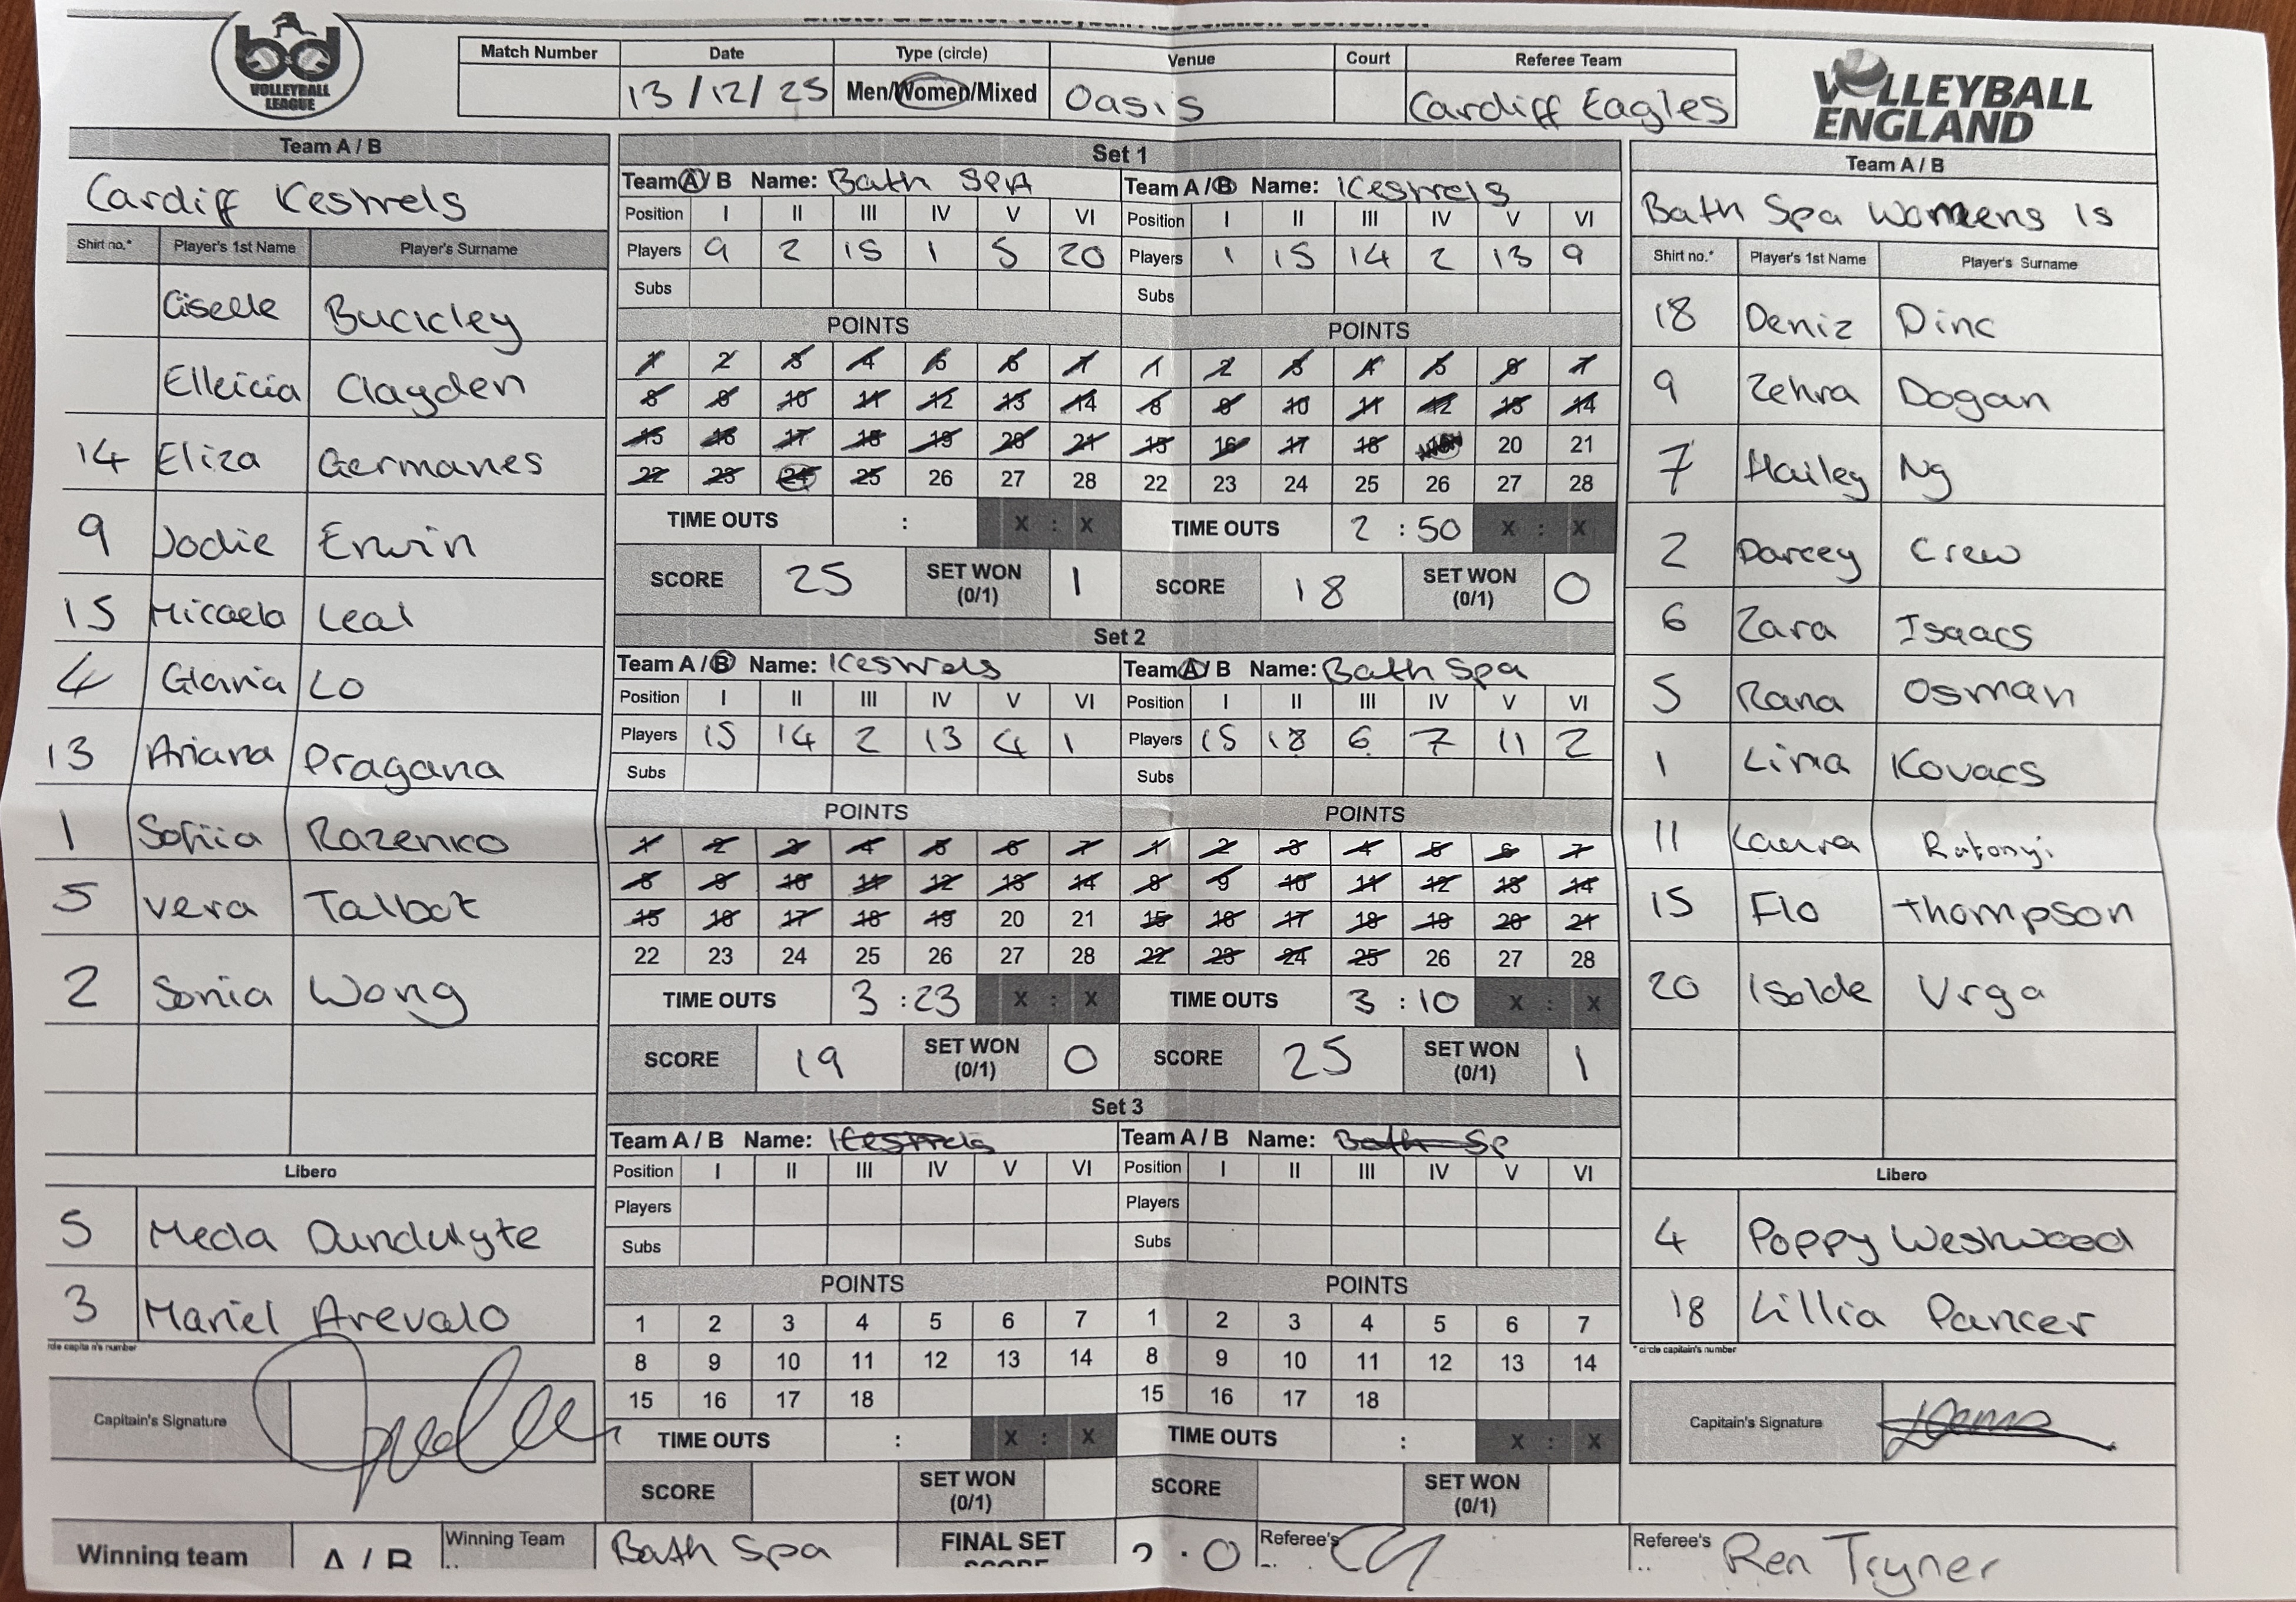 bd
VOLLEYBALL
LEAGUE
Match Number Date Type (circle) Venue Court Referee Team
13/12/25 Men/Women/Mixed Oasis Cardiff Eagles
VOLLEYBALL
ENGLAND
Team A / B
Cardiff Kestrels
Shirt no.* Player's 1st Name Player's Surname
Giselle Buckley
Elleicia Clayden
14 Eliza Germanes
9 Jodie Erwin
15 Micaela Leal
4 Gloria Lo
13 Ariana Pragana
1 Sofiia Razenko
5 Vera Talbot
2 Sonia Wong
Libero
5 Meda Dundulyte
3 Mariel Arevalo
Capitain's Signature
Set 1
Team A / B Name: Bath SPA
Position I II III IV V VI
Players 9 2 15 1 5 20
Subs
POINTS
1 2 3 4 5 6 7
8 9 10 11 12 13 14
15 16 17 18 19 20 21
22 23 24 25 26 27 28
TIME OUTS : X : X
SCORE 25 SET WON (0/1) 1
Team A / B Name: Kestrels
Position I II III IV V VI
Players 1 15 14 2 13 9
Subs
POINTS
1 2 3 4 5 6 7
8 9 10 11 12 13 14
15 16 17 18 20 21
22 23 24 25 26 27 28
TIME OUTS 2 : 50 X : X
SCORE 18 SET WON (0/1) 0
Set 2
Team A / B Name: Kestrels
Position I II III IV V VI
Players 15 14 2 13 4 1
Subs
POINTS
1 2 3 4 5 6 7
8 9 10 11 12 13 14
15 16 17 18 19 20 21
22 23 24 25 26 27 28
TIME OUTS 3 : 23 X : X
SCORE 19 SET WON (0/1) 0
Team A / B Name: Bath Spa
Position I II III IV V VI
Players 15 18 6 7 11 2
Subs
POINTS
1 2 3 4 5 6 7
8 9 10 11 12 13 14
15 16 17 18 19 20 21
22 23 24 25 26 27 28
TIME OUTS 3 : 10 X : X
SCORE 25 SET WON (0/1) 1
Set 3
Team A / B Name: Kestrels
Position I II III IV V VI
Players
Subs
POINTS
1 2 3 4 5 6 7
8 9 10 11 12 13 14
15 16 17 18
TIME OUTS : X : X
SCORE SET WON (0/1)
Team A / B Name: Bath Sp
Position I II III IV V VI
Players
Subs
POINTS
1 2 3 4 5 6 7
8 9 10 11 12 13 14
15 16 17 18
TIME OUTS : X : X
SCORE SET WON (0/1)
Team A / B
Bath Spa Womens 1s
Shirt no.* Player's 1st Name Player's Surname
18 Deniz Dinc
9 Zehra Dogan
7 Hailey Ng
2 Darcey Crew
6 Zara Isaacs
5 Rana Osman
1 Lina Kovacs
11 Laura Ratonyi
15 Flo Thompson
20 Isolde Vrga
Libero
4 Poppy Westwood
18 Lillia Pancer
* circle capitain's number
Capitain's Signature
Winning team A / B Winning Team Bath Spa FINAL SET SCORE 2 . 0 Referee's Referee's Ren Tryner